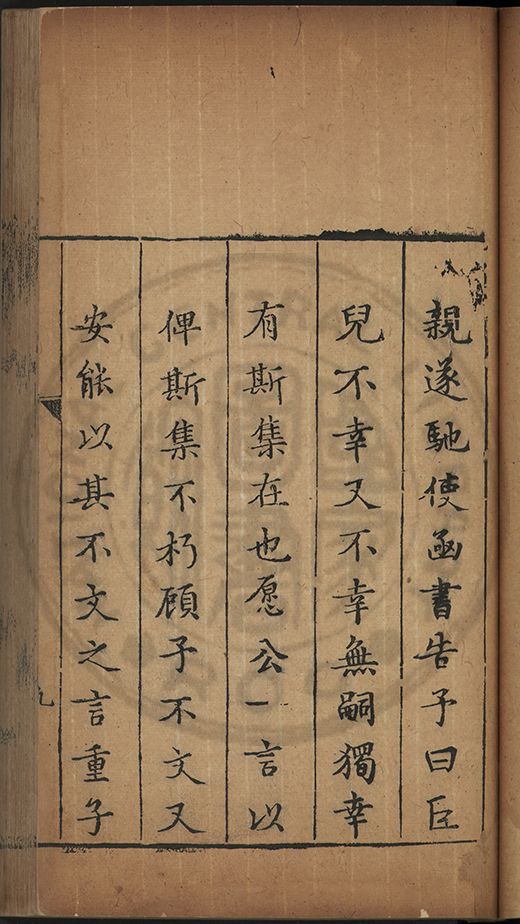 親遂馳使函書告予曰巨
兒不幸又不幸無嗣獨幸
有斯集在也愿公一言以
俾斯集不朽顧予不文又
安能以其不文之言重子
九